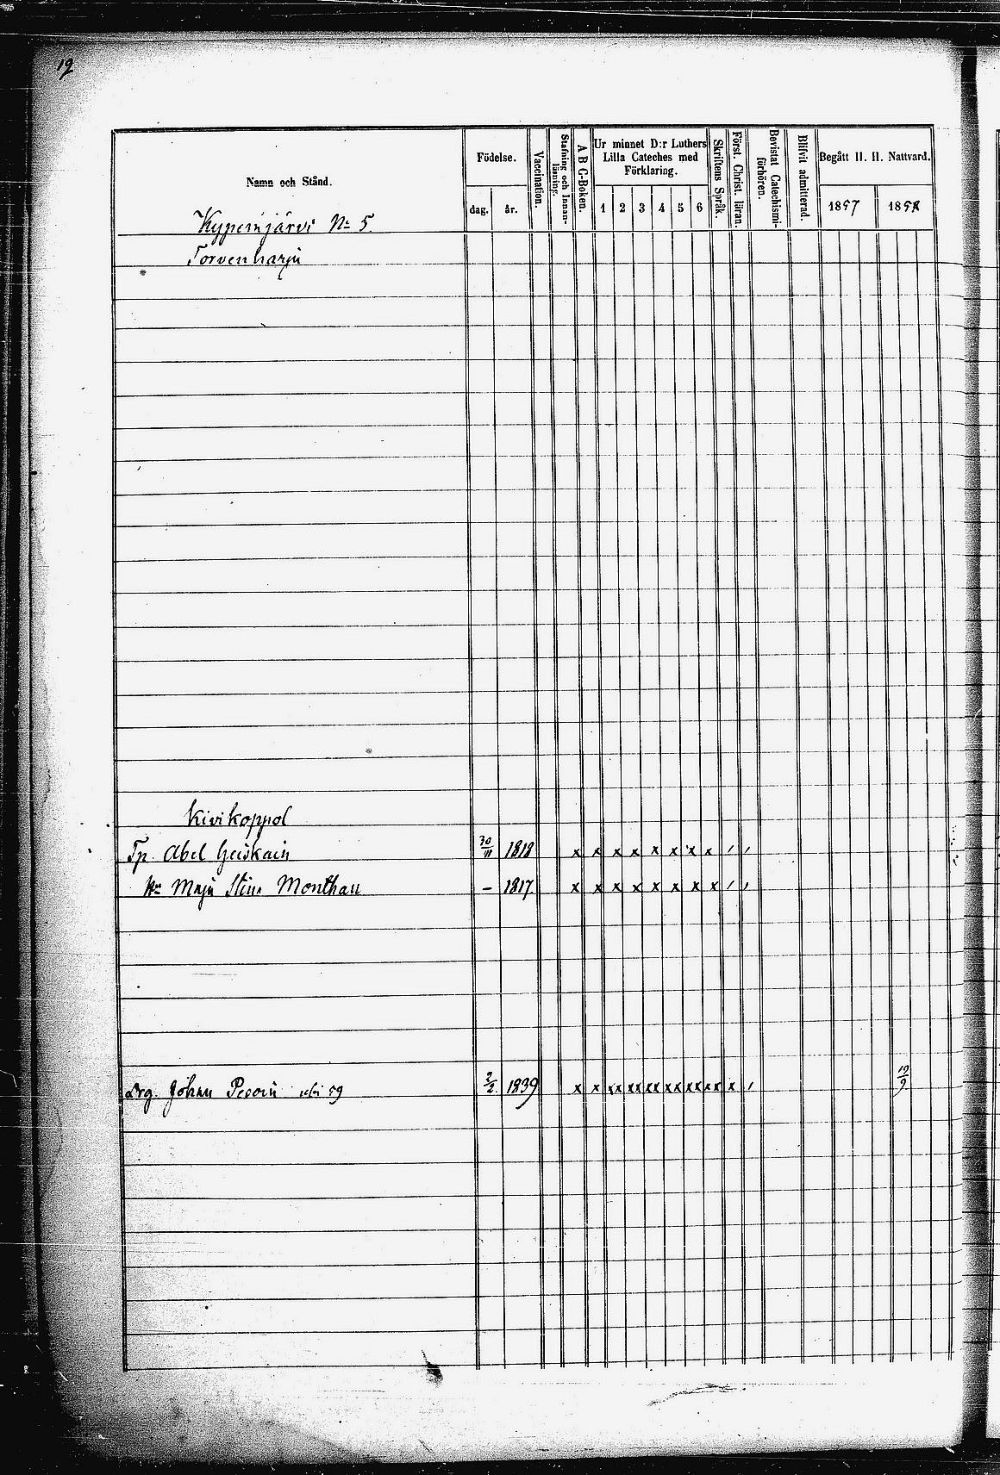 19
Namn och Stånd.
Födelse.
dag.
år.
Vaccination.
Stafning och Innan-läsning.
A B C-Boken.
Ur minnet D:r Luthers
Lilla Cateches med
Förklaring.
1 2 3 4 5 6
Skriftens Språk.
Först. Christ. läran.
Bevistat Catechismi-förhören.
Blifvit admitterad.
Begått H. H. Nattvard.
1857 1858
Kypernjärvi No 5
Torvenharju
Kivikoppol
Tp. Abel 30/11 1818 x x x x x x x x / /
Maja Stina Monthan – 1817 x x x x x x x x / /
Drg. Johan 59 2/2 1839 x x xx xx xx xx xx xx x / 19/9